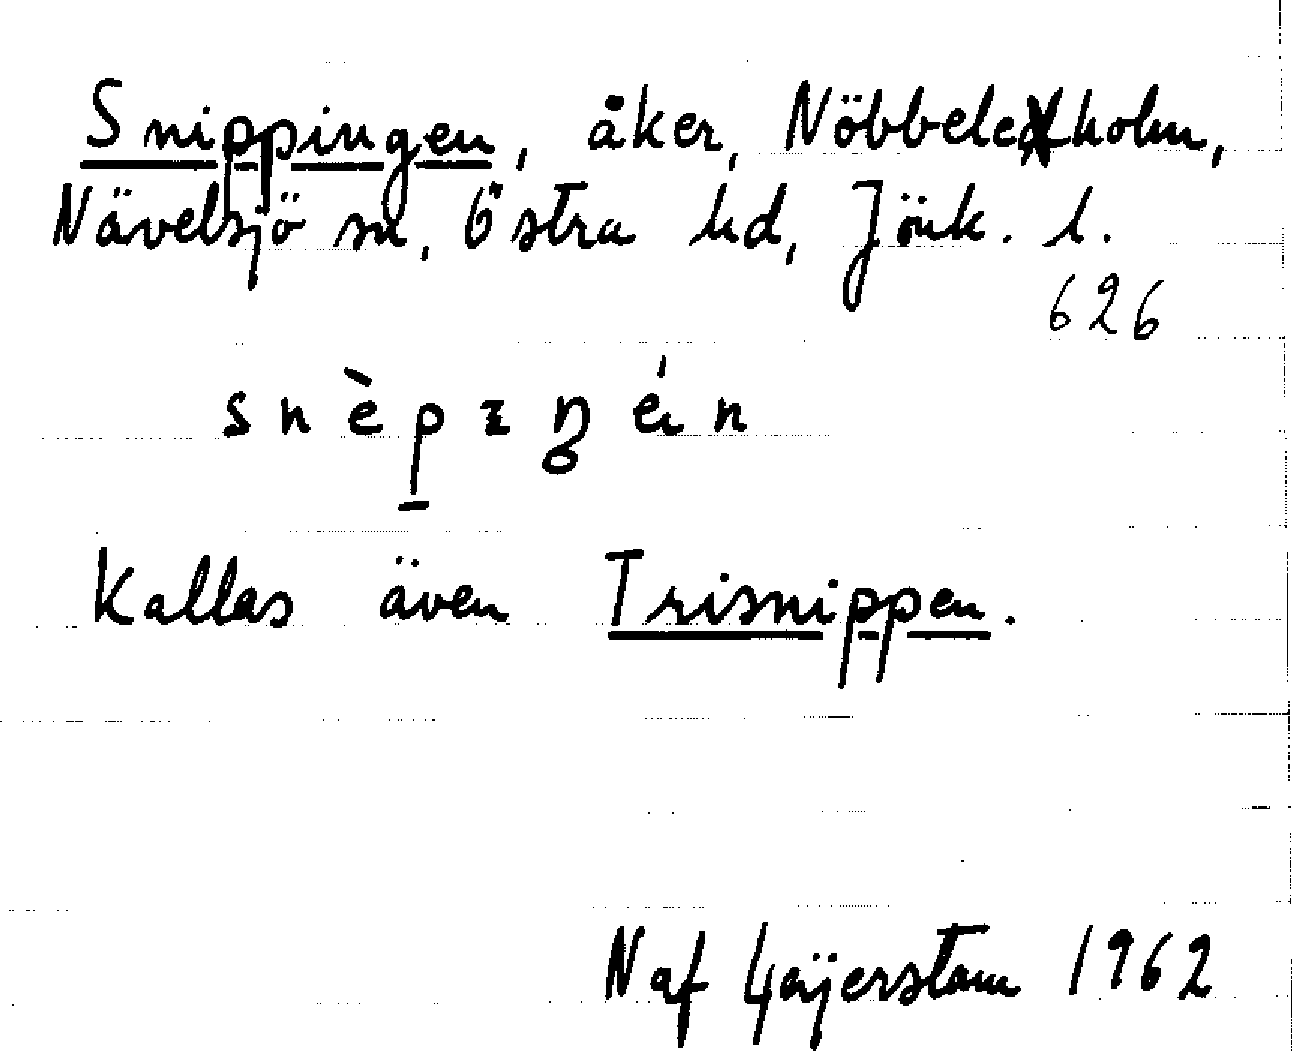 Snippingen, åker, Nöbbeleholm,
Nävelsjö sn, Östra hd, Jönk. l.
626
Kallas även Trisnippen.
N af Geijerstam 1962